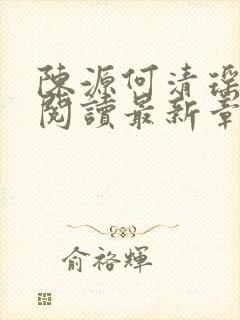 陳源何清瑤
閱讀最新章
俞裕輝